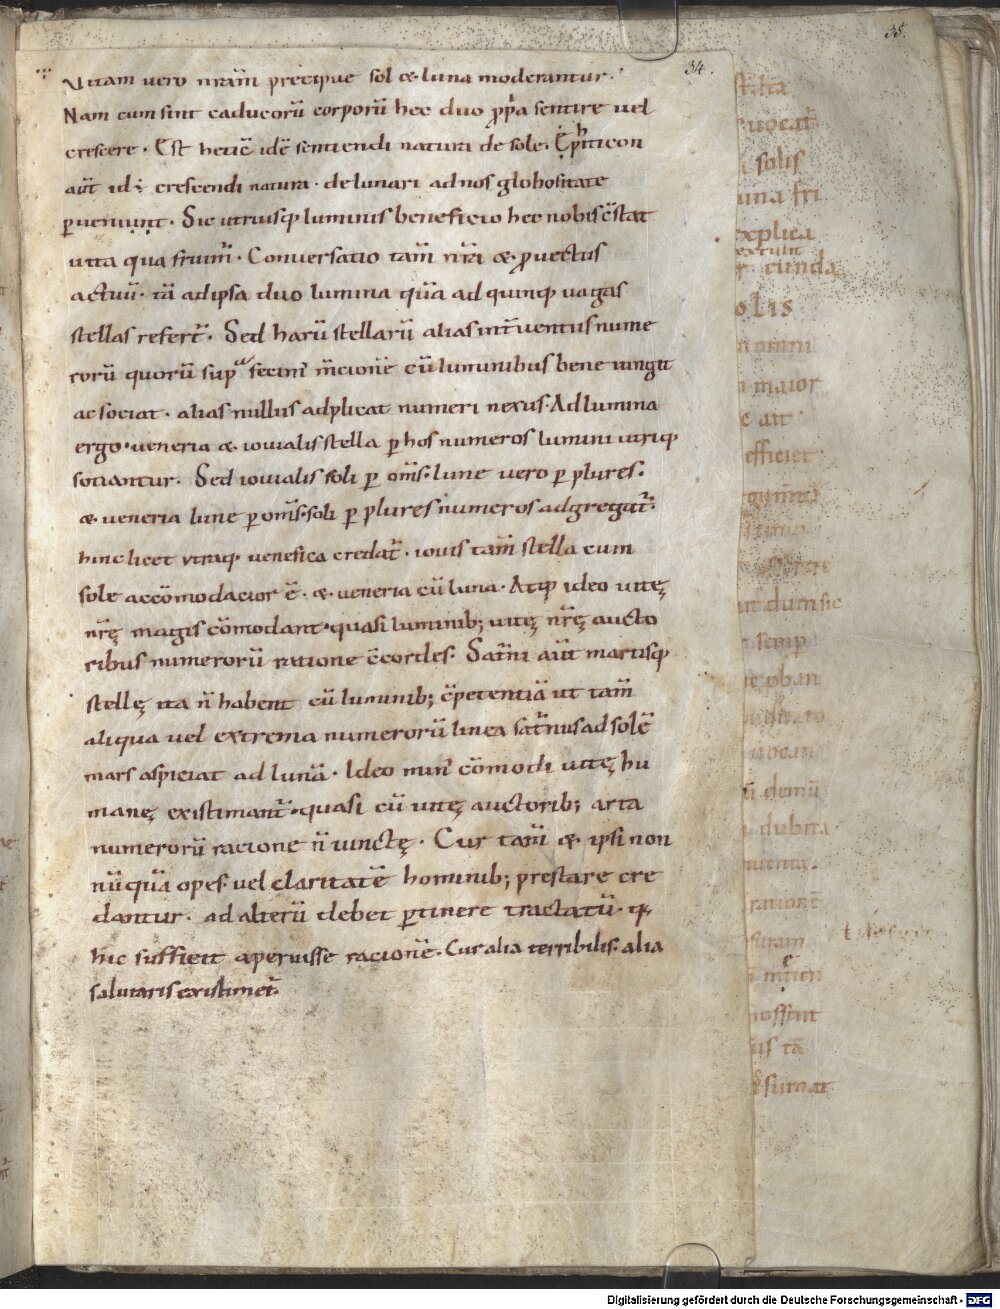 34.
35.
Vitam vero nr̄am precipue sol & luna moderantur.
Nam cum sint caducorū corporū hec duo ppa sentire vel
crescere. Est hec ide sentiendi natura de sole.
aut̄ id ÷ crescendi natura. de lunari ad nos globositate
perveniunt. Sic utriusq luminis beneficio hec nobis c̄stat
vita qua fruim̄. Conversatio tam̄ nr̄a & provectus
actuū. tā ad ipsa duo lumina quā ad quinq vagas
stellas refert̄. Sed harū stellarū alias int̄ventus nume
rorū quorū supa fecim̄ m̄cionē cū luminibus bene iungit
ac sociat. alias nullus adplicat numeri nexus. Ad lumina
ergo. veneria & iovialis stella p hos numeros lumini utriq
sotiantur. Sed iovialis soli p om̄s. lune vero p plures.
& veneria lune p om̄s. soli p plures numeros adgregat̄.
hinc licet utraq venefica credat̄. iovis tam̄ stella cum
sole accōmodacior ē. & veneria cū luna. Atq ideo vitę
nr̄ę magis cōmodant. quasi luminib; vitę nr̄ę aucto
ribus numerorū ratione c̄cordes. Sat̄ni aut̄ martisq
stellę ita n̄ habent cū luminib; c̄petentiā ut tam̄
aliqua vel extrema numerorū linea sat̄nus ad solē
mars aspiciat ad lunā. Ideo min̄ cōmodi vitę hu
manę existimant̄. quasi cū vitę auctorib; arta
numerorū racione n̄ iunctę. Cur tam̄ & ipsi non
nūquā opes vel claritatē hominib; prestare cre
dantur. ad alterū debet ptinere tractatū. q
hic sufficit aperuisse racionē. Cur alia terribilis. alia
salutaris existimet̄.
solis
explica
cunda
olis
omni
maior
efficiet
dum sic
semp
demū
dubita
possint
sumat
Digitalisierung gefördert durch die Deutsche Forschungsgemeinschaft - DFG